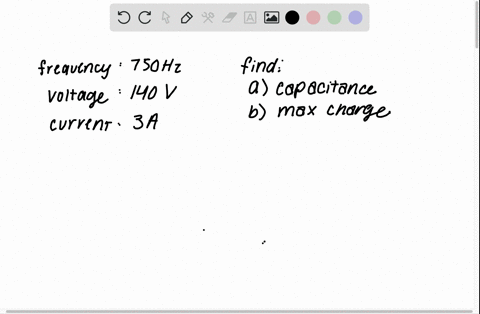 frequency: 750Hz
voltage: 140 V
current. 3A
find:
a) capacitance
b) max charge